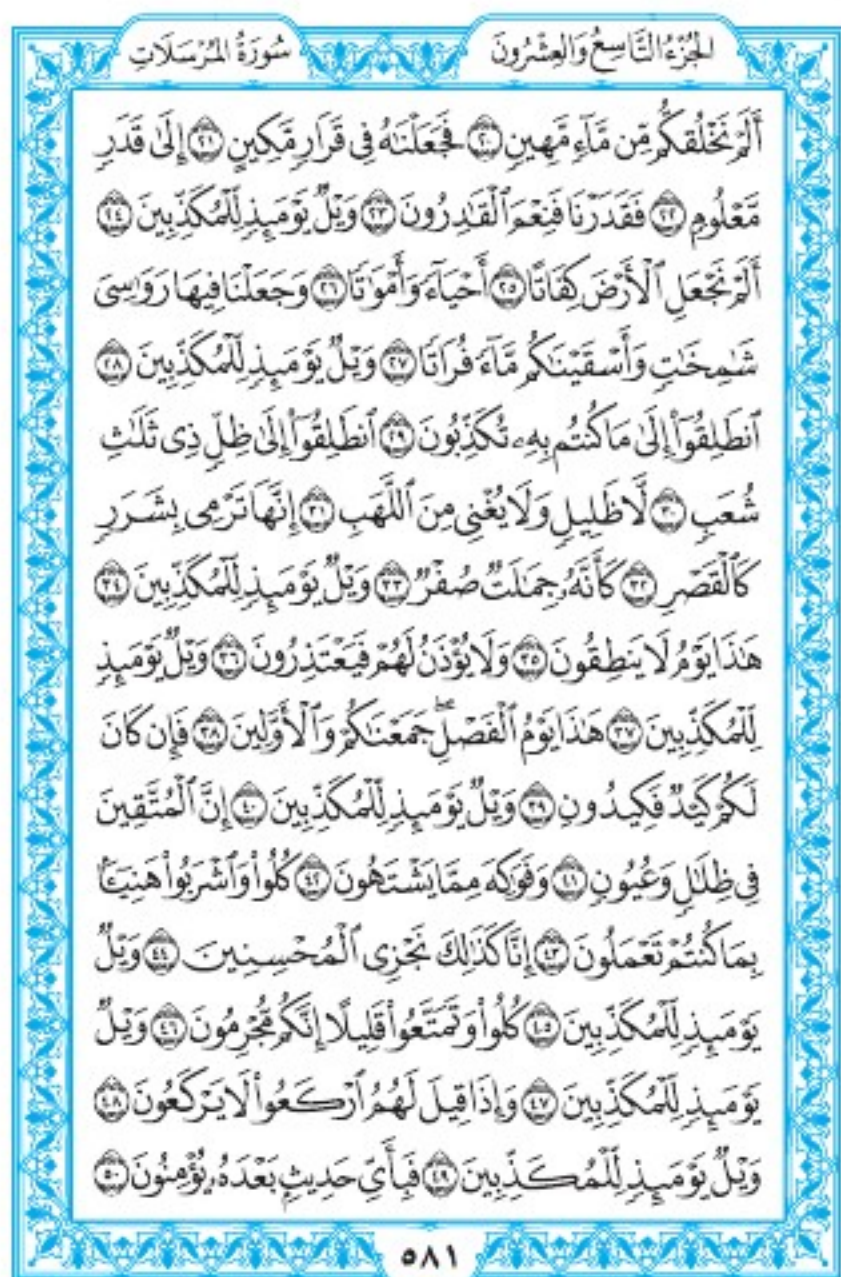 الجُزْءُ التَّاسِعُ وَالعِشْرُونَ
سُورَةُ المُرْسَلَاتِ
أَلَمْ نَخْلُقكُّم مِّن مَّآءٍ مَّهِينٍ ۝٢٠ فَجَعَلْنَاهُ فِى قَرَارٍ مَّكِينٍ ۝٢١ إِلَىٰ قَدَرٍ
مَّعْلُومٍ ۝٢٢ فَقَدَرْنَا فَنِعْمَ ٱلْقَٰدِرُونَ ۝٢٣ وَيْلٌ يَوْمَئِذٍ لِّلْمُكَذِّبِينَ ۝٢٤
أَلَمْ نَجْعَلِ ٱلْأَرْضَ كِفَاتًا ۝٢٥ أَحْيَآءً وَأَمْوَٰتًا ۝٢٦ وَجَعَلْنَا فِيهَا رَوَٰسِىَ
شَٰمِخَٰتٍ وَأَسْقَيْنَٰكُم مَّآءً فُرَاتًا ۝٢٧ وَيْلٌ يَوْمَئِذٍ لِّلْمُكَذِّبِينَ ۝٢٨
ٱنطَلِقُوٓا۟ إِلَىٰ مَا كُنتُم بِهِۦ تُكَذِّبُونَ ۝٢٩ ٱنطَلِقُوٓا۟ إِلَىٰ ظِلٍّ ذِى ثَلَٰثِ
شُعَبٍ ۝٣٠ لَّا ظَلِيلٍ وَلَا يُغْنِى مِنَ ٱللَّهَبِ ۝٣١ إِنَّهَا تَرْمِى بِشَرَرٍ
كَٱلْقَصْرِ ۝٣٢ كَأَنَّهُۥ جِمَٰلَتٌ صُفْرٌ ۝٣٣ وَيْلٌ يَوْمَئِذٍ لِّلْمُكَذِّبِينَ ۝٣٤
هَٰذَا يَوْمُ لَا يَنطِقُونَ ۝٣٥ وَلَا يُؤْذَنُ لَهُمْ فَيَعْتَذِرُونَ ۝٣٦ وَيْلٌ يَوْمَئِذٍ
لِّلْمُكَذِّبِينَ ۝٣٧ هَٰذَا يَوْمُ ٱلْفَصْلِ ۖ جَمَعْنَٰكُمْ وَٱلْأَوَّلِينَ ۝٣٨ فَإِن كَانَ
لَكُمْ كَيْدٌ فَكِيدُونِ ۝٣٩ وَيْلٌ يَوْمَئِذٍ لِّلْمُكَذِّبِينَ ۝٤٠ إِنَّ ٱلْمُتَّقِينَ
فِى ظِلَٰلٍ وَعُيُونٍ ۝٤١ وَفَوَٰكِهَ مِمَّا يَشْتَهُونَ ۝٤٢ كُلُوا۟ وَٱشْرَبُوا۟ هَنِيٓـًٔا
بِمَا كُنتُمْ تَعْمَلُونَ ۝٤٣ إِنَّا كَذَٰلِكَ نَجْزِى ٱلْمُحْسِنِينَ ۝٤٤ وَيْلٌ
يَوْمَئِذٍ لِّلْمُكَذِّبِينَ ۝٤٥ كُلُوا۟ وَتَمَتَّعُوا۟ قَلِيلًا إِنَّكُم مُّجْرِمُونَ ۝٤٦ وَيْلٌ
يَوْمَئِذٍ لِّلْمُكَذِّبِينَ ۝٤٧ وَإِذَا قِيلَ لَهُمُ ٱرْكَعُوا۟ لَا يَرْكَعُونَ ۝٤٨
وَيْلٌ يَوْمَئِذٍ لِّلْمُكَذِّبِينَ ۝٤٩ فَبِأَىِّ حَدِيثٍۭ بَعْدَهُۥ يُؤْمِنُونَ ۝٥٠
٥٨١